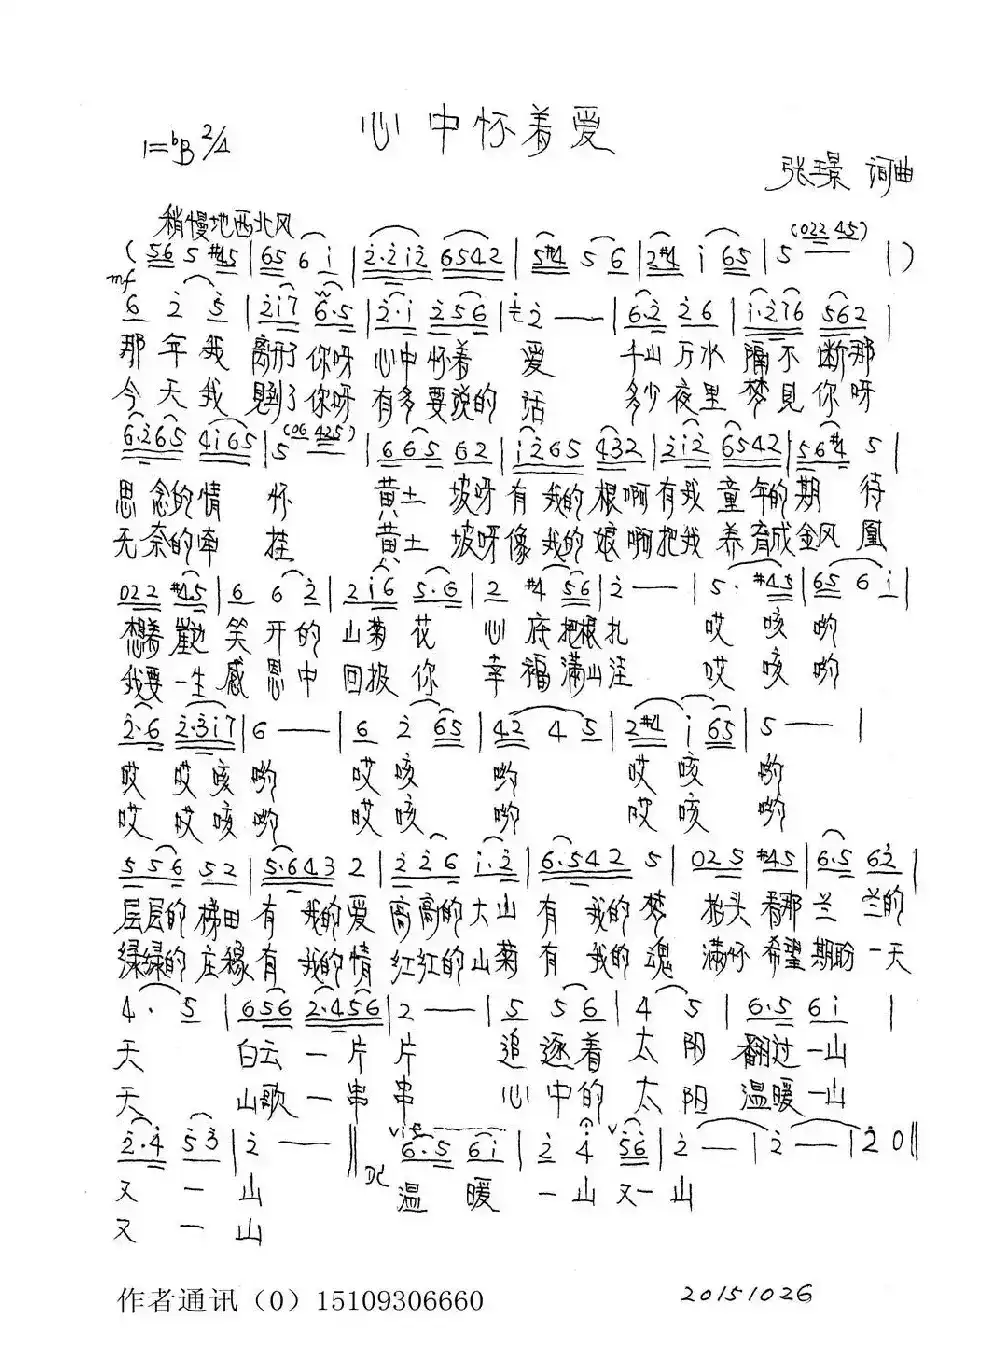 心中怀着爱
1=bB 2/4
张璟 词曲
稍慢地西北风
(56 5 #45 | 65 6 i | 2·2i2 6542 | 5#4 5 6 | 2#4 i 65 | 5 (022 45) | )
mf
6 2 5 | 2i7 6·5 | 2·i 256 | 2 — | 6·2 26 | i·276 562 |
那年我 离开了你呀 心中怀着 爱 千山万水 隔不断那
今天我 見到了你呀 有多要说的 话 多少夜里 梦見你呀
6·265 4i65 | 5 (06 425) | 665 62 | i265 432 | 2i2 6542 | 56#4 5 |
思念的情 怀 黄土 坡呀有 我的根啊有我 童年的期 待
无奈的牵 挂 黄土 坡呀像 我的娘啊把我 养育成金凤 凰
022 #45 | 6 6 2 | 2i6 5·6 | 2 #4 56 | 2 — | 5· #45 | 65 6 i |
想着 笑开的 山菊花 心底把根扎 哎 咳 哟
我要一生感恩中 回报你 幸福满山洼 哎 咳 哟
2·6 2·3i7 | 6 — | 6 2 65 | 42 4 5 | 2#4 i 65 | 5 — |
哎 哎咳 哟 哎咳 哟 哎咳 哟
哎 哎咳 哟 哎咳 哟 哎咳 哟
556 52 | 5·643 2 | 226 i·2 | 6·542 5 | 025 #45 | 6·5 62 |
层层的梯田有 我的爱 高高的大山有 我的梦 抬头看那兰 兰的
绿绿的庄稼有 我的情 红红的山菊有 我的魂 满怀希望期盼一天
4· 5 | 656 2·456 | 2 — | 5 5 6 | 4 5 | 6·5 6i |
天 白云一片 片 追逐着 太阳 翻过一山
天 山歌一串 串 心中的 太阳 温暖一山
2·4 53 | 2 — ‖ 6·5 6i | 2 4 56 | 2 — | 2 — | 2 0 ‖
DC
又一 山 温暖 一山又一 山
又一 山
作者通讯（0）15109306660
20151026